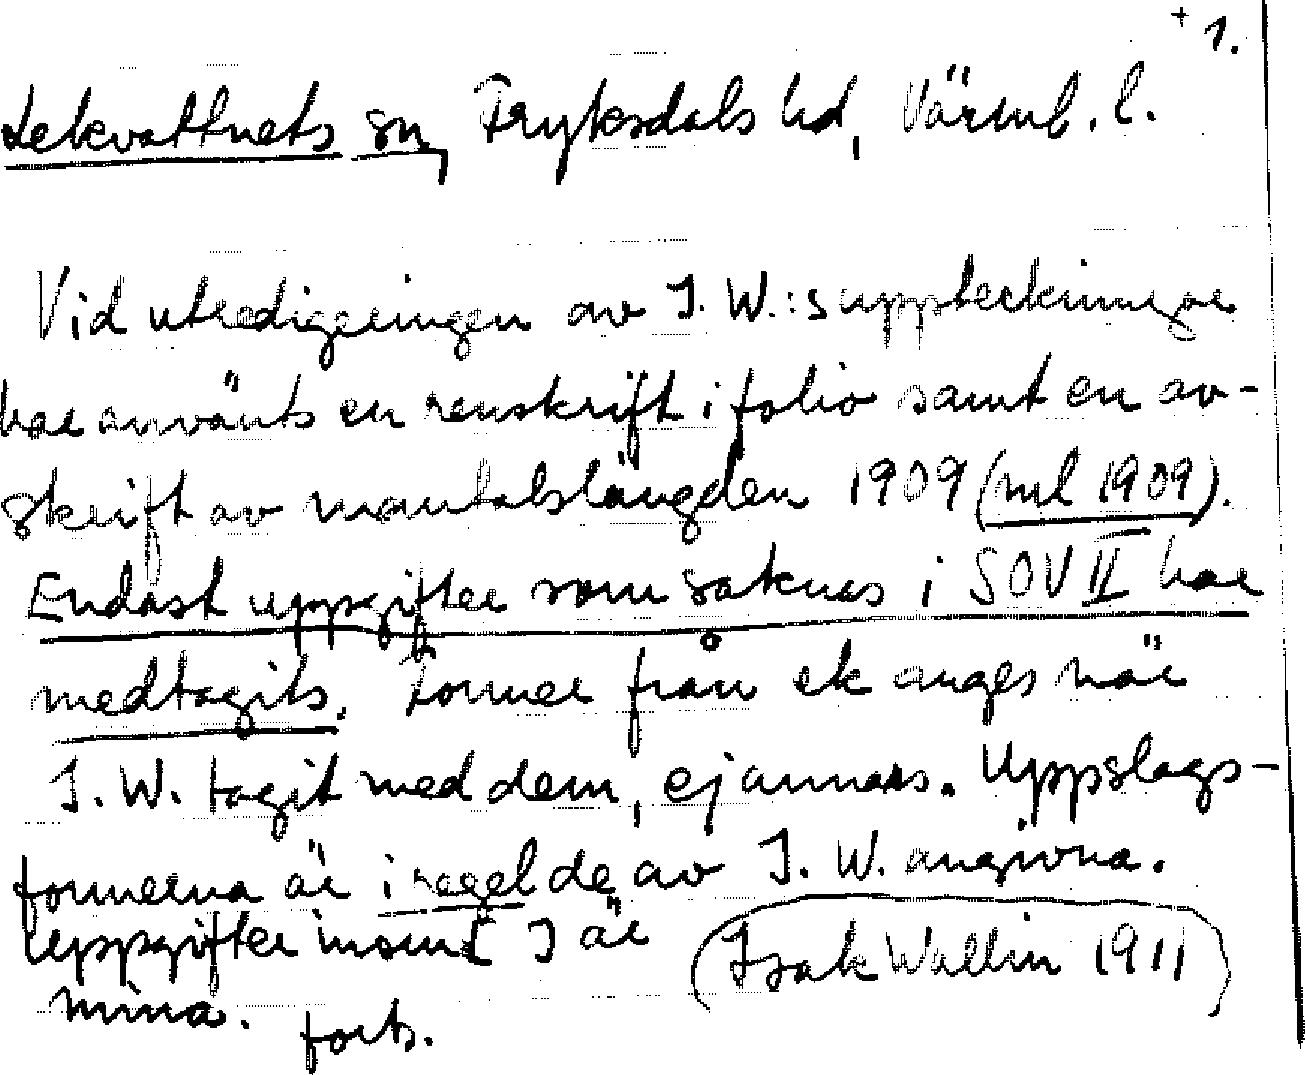 + 1.
Lekvattnets sn, Fryksdals hd, Värml. l.
Vid utredigeringen av I. W.:s uppteckningar
har använts en renskrift i folio samt en av-
skrift av mantalslängden 1909 (ml 1909).
Endast uppgifter som saknas i SOV II har
medtagits. Former från ek anges när
I. W. tagit med dem, ej annars. Uppslags-
formerna är i regel de av I. W. angivna.
Uppgifter inom [ ] är (Isak Wallin 1911)
mina. forts.